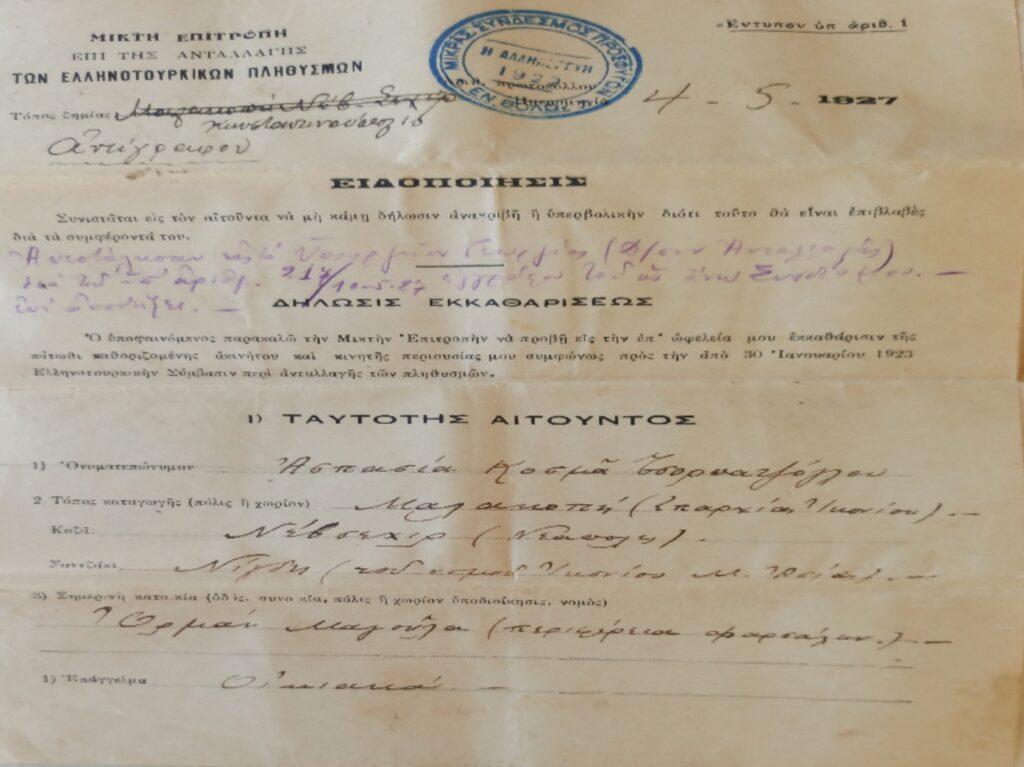 Ἔντυπον ὑπ' ἀριθ. 1
ΜΙΚΤΗ ΕΠΙΤΡΟΠΗ
ΕΠΙ ΤΗΣ ΑΝΤΑΛΛΑΓΗΣ
ΤΩΝ ΕΛΛΗΝΟΤΟΥΡΚΙΚΩΝ ΠΛΗΘΥΣΜΩΝ
ΣΥΝΔΕΣΜΟΣ ΠΡΟΣΦΥΓΩΝ
Η ΑΛΛΗΛΕΓΓΥΗ
1922
ΕΝ ΒΟΛΩ
πρωτοκόλλου
Ἡμερομηνία 4 - 5 - 1927
Τόπος ζημίας Μαλακοπή Νέβ-Σεχίρ
Κωνσταντινούπολις
Ἀντίγραφον
ΕΙΔΟΠΟΙΗΣΙΣ
Συνιστᾶται εἰς τὸν αἰτοῦντα νὰ μὴ κάμῃ δήλωσιν ἀνακριβῆ ἢ ὑπερβολικὴν διότι τοῦτο θὰ εἶναι ἐπιβλαβὲς
διὰ τὰ συμφέροντά του.
Ὑπουργεῖον Γεωργίας (Δ/σιν Ἀνταλλαγῆς)
ἀριθ. 217/10-5-27
ΔΗΛΩΣΙΣ ΕΚΚΑΘΑΡΙΣΕΩΣ
Ὁ ὑποφαινόμενος παρακαλῶ τὴν Μικτὴν Ἐπιτροπὴν νὰ προβῇ εἰς τὴν ἐπ' ὠφελείᾳ μου ἐκκαθάρισιν τῆς
κάτωθι καθοριζομένης ἀκινήτου καὶ κινητῆς περιουσίας μου συμφώνως πρὸς τὴν ἀπὸ 30 Ἰανουαρίου 1923
Ἑλληνοτουρκικὴν Σύμβασιν περὶ ἀνταλλαγῆς τῶν πληθυσμῶν.
I) ΤΑΥΤΟΤΗΣ ΑΙΤΟΥΝΤΟΣ
1) Ὀνοματεπώνυμον Ἀσπασία Κοσμᾶ Τσορπατζόγλου
2 Τόπος καταγωγῆς (πόλις ἢ χωρίον) Μαλακοπή (Ἐπαρχίας Ἰκονίου). -
Καζᾶ Νέβσεχιρ (Νεάπολις).
Σαντζάκι Νίγδη (τοῦ νομοῦ Ἰκονίου Μ. Ἀσίας). -
3) Σημερινὴ κατοικία (ὁδός, συνοικία, πόλις ἢ χωρίον ὑποδιοίκησις, νομὸς)
Ὀρμάν Μαγοῦλα (περιφέρεια Φαρσάλων.). -
4) Ἐπάγγελμα Οἰκιακά. -